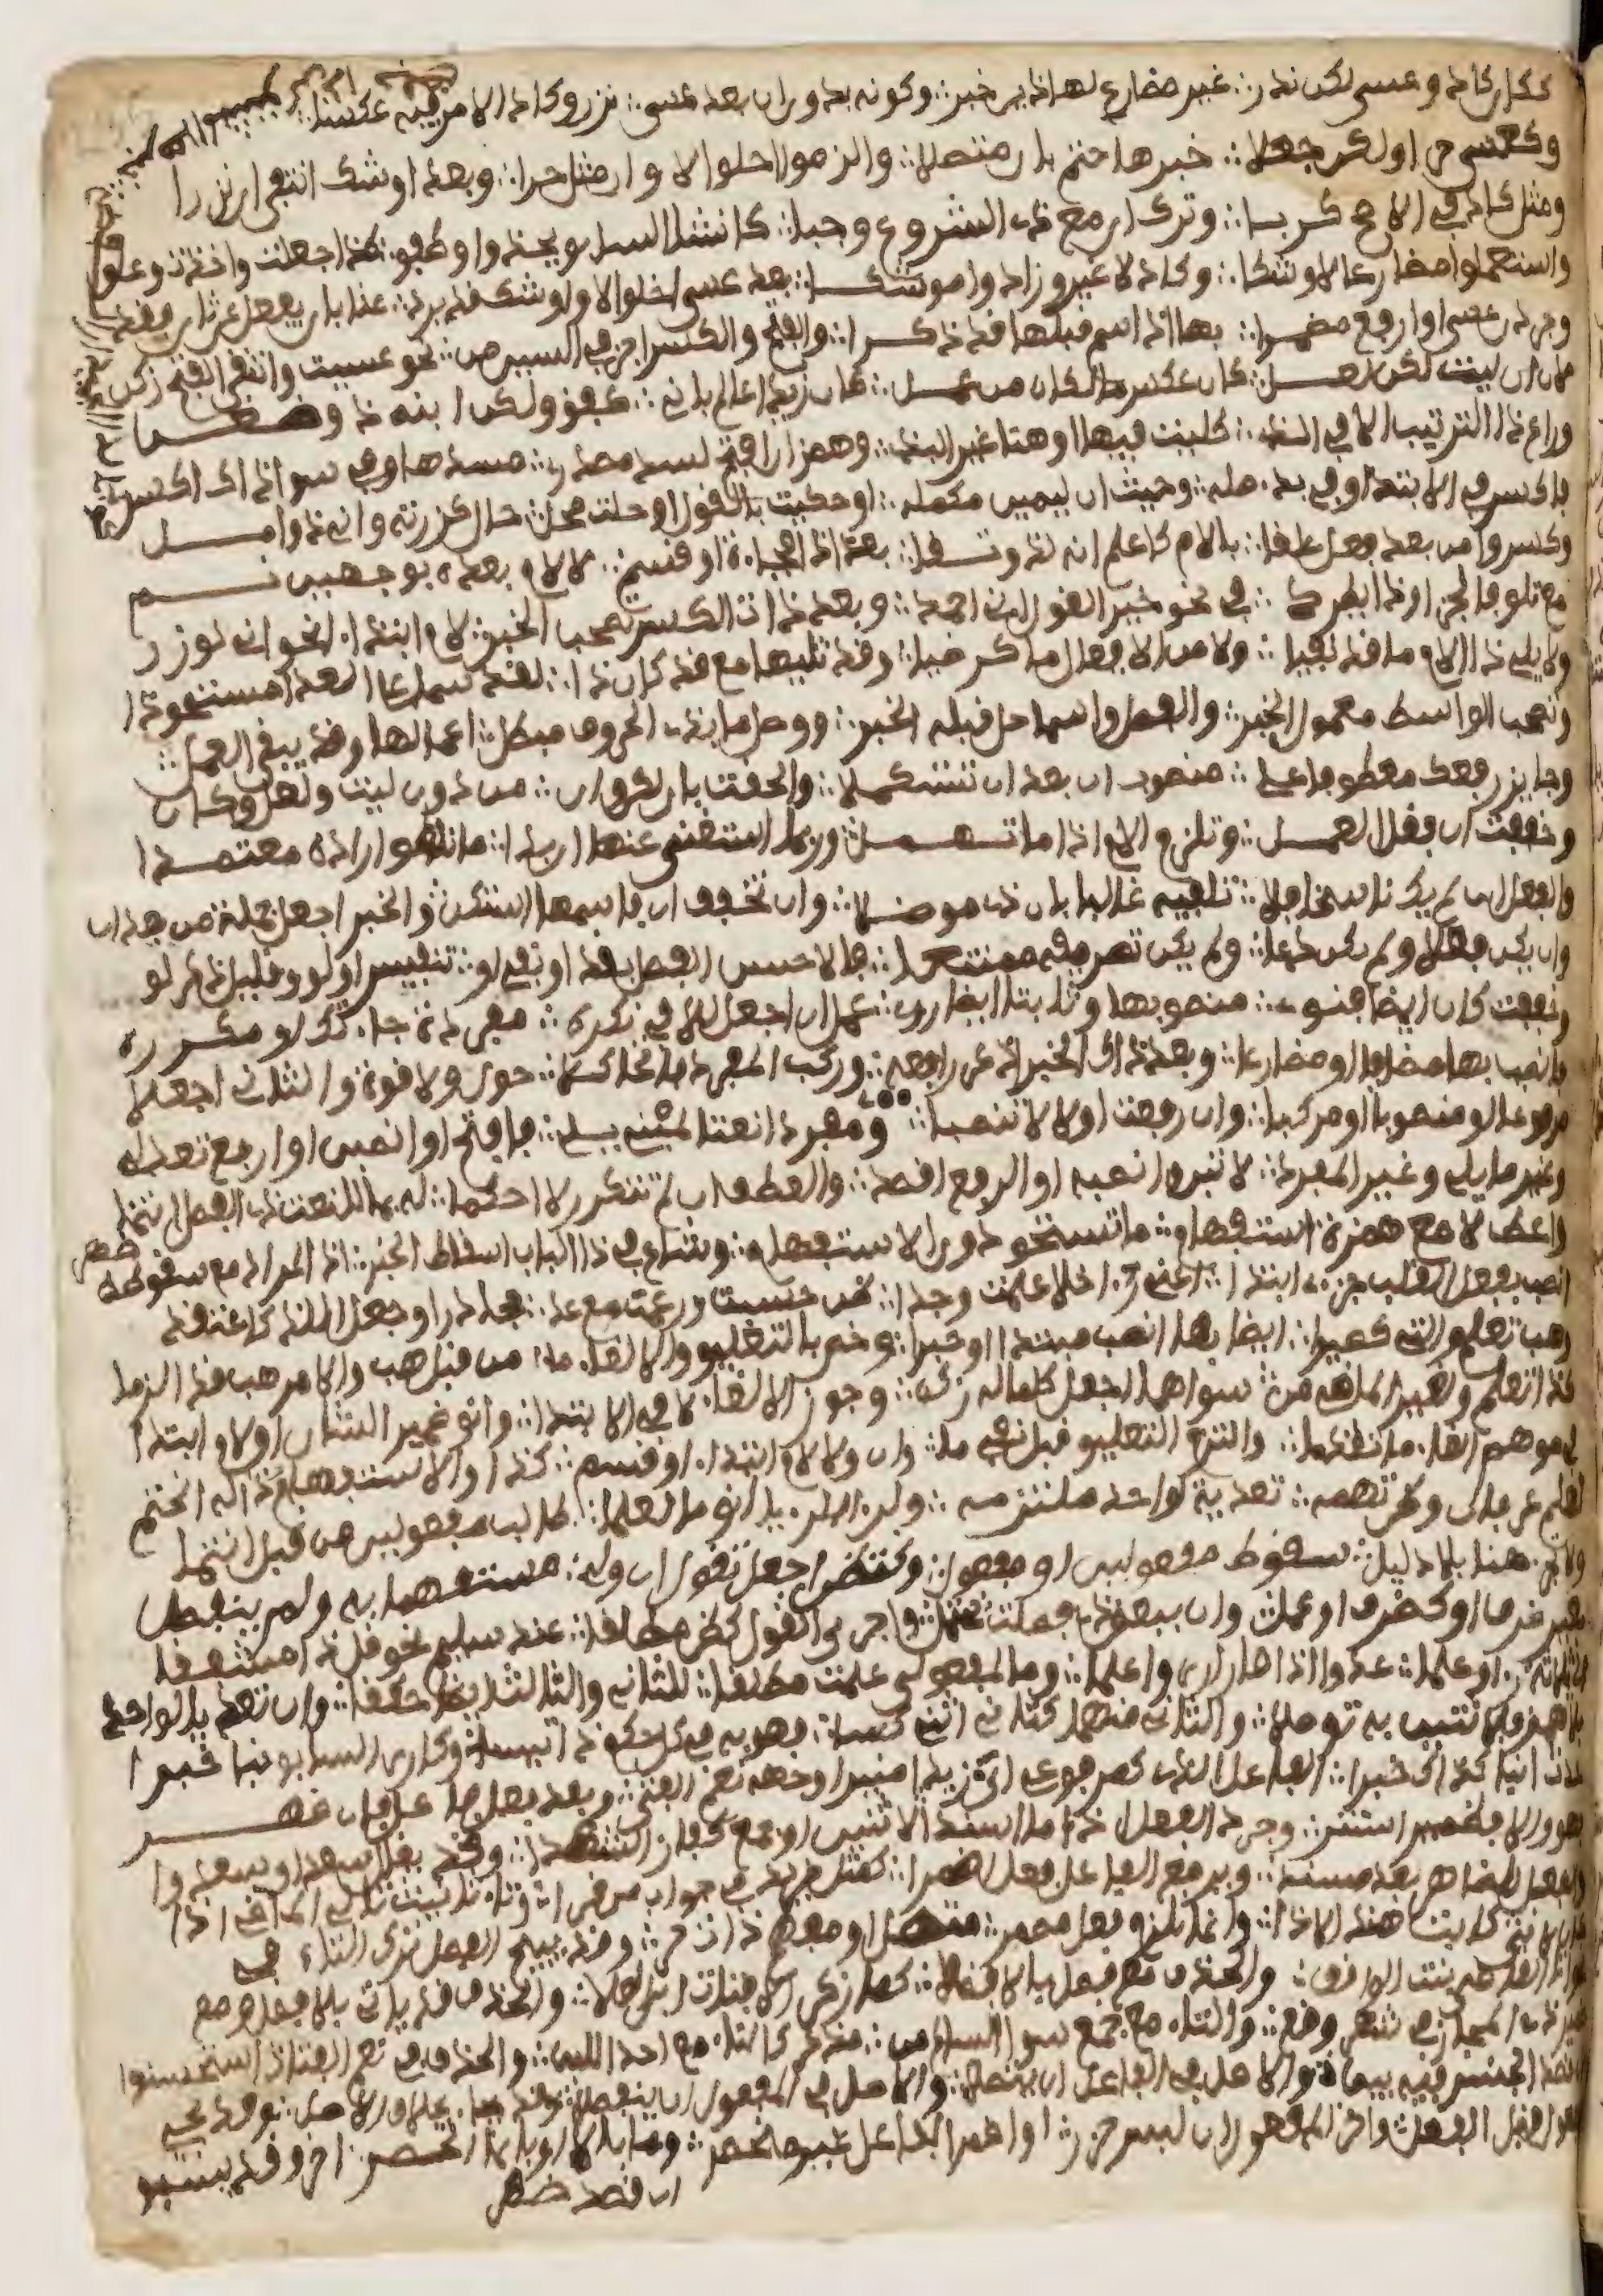 ككان كاد وعسى لكن ندر ∴ غير مضارع لهاذين خبر ∴ وكونه بدون ان بعد عسى ∴ نزر وكاد الامر فيه عكسا
وكعسى حرى ولكن جعلا ∴ خبرها حتما بان متصلا ∴ والزموا اخلولق ان مثل حرا ∴ وبعد اوشك انتفى ان نزرا
ومثل كاد في الاصح كربا ∴ وترك ان مع ذي الشروع وجبا ∴ كانشا السايق يحدوا وطفق ∴ كذا جعلت واخذت وعلق
واستعملوا مضارعا لاوشكا ∴ وكاد لا غير وزادوا موشكا ∴ بعد عسى اخلولق اوشك قد يرد ∴ غنا بان يفعل عن ثان فقد
وجردن عسى او ارفع مضمرا ∴ بها اذا اسم قبلها قد ذكرا ∴ والفتح والكسر اجز في السين من ∴ نحو عسيت وانتقى الفتح زكن
لان ان ليت لكن لعل ∴ كان عكس ما لكان من عمل ∴ كان زيدا عالم باني ∴ كفؤ ولكن ابنه ذو ضغن
وراع ذا الترتيب الا في الذ ∴ كليت فيها او هنا غير البذ ∴ وهمز ان افتح لسد مصدر ∴ مسدها وفي سوى ذاك اكسر
فاكسر في الابتدا وفي بدء صله ∴ وحيث ان ليمين مكمله ∴ او حكيت بالقول او حلت محل ∴ حال كزرته واني ذوا امل
وكسروا من بعد فعل علقا ∴ بالام كاعلم انه لذو تقا ∴ بعد اذا فجاءة او قسم ∴ لا لام بعده بوجهين نم
مع تلو فا الجزا وذا يطرد ∴ في نحو خير القول اني احمد ∴ وبعد ذات الكسر تصحب الخبر ∴ لام ابتداء نحو اني لوزر
ولا يلي ذا الام ما قد نفيا ∴ ولا من الافعال ما كرضيا ∴ وقد تليها مع قد كان ذا ∴ لقد سما على العدا مستحوذا
وتصحب الواسط معمول الخبر ∴ والفصل واسما حل قبله الخبر ∴ ووصل ما بذي الحروف مبطل ∴ اعمالها وقد يبقى العمل ∴
وجايز رفعك معطوفا على ∴ منصوب ان بعد ان تستكملا ∴ والحقت بان لكن وان ∴ من دون ليت ولعل وكان
وخففت ان فقل العمل ∴ وتلزم الام اذا ما تهمل ∴ وربما استغني عنها ان بدا ∴ ما ناطق اراده معتمدا
والفعل ان لم يك ناسخا فلا ∴ تلفيه غالبا بان ذي موصلا ∴ وان تخفف ان فاسمها استكن ∴ والخبر اجعل جملة من بعد ان
وان يكن فعلا ولم يكن دعا ∴ ولم يكن تصريفه ممتنعا ∴ فالاحسن الفصل بقد او نفي او ∴ تنفيس او لو وقليل ذكر لو
وخففت كان ايضا فنوي ∴ منصوبها وثابتا ايضا روي ∴ عمل ان اجعل للا في نكرة ∴ مفردة جاءتك او مكررة
فانصب بها مضافا او مضارعا ∴ وبعد ذاك الخبر اذكر رافعه ∴ وركب المفرد فاتحا كلا ∴ حول ولا قوة والثاني اجعلا
مرفوعا او منصوبا او مركبا ∴ وان رفعت اولا لا تنصبا ∴ ومفردا نعتا لمبني يلي ∴ فافتح او انصبن او ارفع تعدل
وغير ما يلي وغير المفرد ∴ لا تبن وانصبه او الرفع اقصد ∴ والعطف ان لم تتكرر لا احكما ∴ له بما للنعت ذي الفصل انتما
واعط لا مع همزة استفهام ∴ ما تستحق دون الاستفهام ∴ وشاع في ذا الباب اسقاط الخبر ∴ اذا المراد مع سقوطه ظهر
انصب بفعل القلب جزءي ابتدا ∴ اعني رءا خال علمت وجدا ∴ ظن حسبت وزعمت مع عد ∴ حجا درا وجعل اللذ كاعتقد
وهب تعلم والتي كصيرا ∴ ايضا بها انصب مبتدا وخبرا ∴ وخص بالتعليق والالغاء ما ∴ من قبل هب والامر هب قد الزما
كذا تعلم ولغير الماض من ∴ سواهما اجعل كلما له زكن ∴ وجوز الالغاء لا في الابتدا ∴ وانو ضمير الشان او لام ابتدا
في موهم الغاء ما تقدما ∴ والتزم التعليق قبل نفي ما ∴ وان ولا لام ابتداء او قسم ∴ كذا والاستفهام ذا له انحتم
لعلم عرفان وظن تهمه ∴ تعدية لواحد ملتزمه ∴ ولرءا الرءيا انم ما لعلما ∴ طالب مفعولين من قبل انتما
ولا تجز هنا بلا دليل ∴ سقوط مفعولين او مفعول ∴ وكتظن اجعل تقول ان ولي ∴ مستفهما به ولم ينفصل
بغير ظرف او كظرف او عمل ∴ وان ببعض ذي فصلت يحتمل ∴ واجري القول كظن مطلقا ∴ عند سليم نحو قل ذا مشفقا
الى ثلاثة رءا وعلما ∴ عدوا اذا صارا ارى واعلما ∴ وما لمفعولي علمت مطلقا ∴ للثاني والثالث ايضا حققا ∴ وان تعديا لواحد
بلا همز فلاثنين به توصلا ∴ والثاني منهما كثاني اثني كسا ∴ فهو به في كل حكم ذو ائتسا ∴ وكارى السابق نبا خبرا
حدث انبا كذاك خبرا ∴ الفاعل الذي كمرفوعي اتى ∴ زيد منيرا وجهه نعم الفتى ∴ وبعد فعل فاعل فان ظهر
فهو والا فضمير استتر ∴ وجرد الفعل اذا ما اسندا ∴ لاثنين او جمع كفاز الشهدا ∴ وقد يقال سعدا وسعدوا
والفعل للظاهر بعد مسند ∴ ويرفع الفاعل فعل اضمرا ∴ كمثل زيد في جواب من قرا ∴ وتاء تانيث تلي الماضي اذا
كان لانثى كابت هند الاذا ∴ وانما تلزم فعل مضمر ∴ متصل او مفهم ذات حر ∴ وقد يبيح الفصل ترك التاء في
نحو اتى القاضي بنت الواقف ∴ والحذف مع فصل بالا فضلا ∴ كما زكى الا فتاة ابن العلا ∴ والحذف قد ياتي بلا فصل ومع
ضمير ذي المجاز في شعر وقع ∴ والتاء مع جمع سوى السالم من ∴ مذكر كالتاء مع احدى اللبن ∴ والحذف في نعم الفتاة استحسنوا
لان قصد الجنس فيه بين ∴ والاصل في الفاعل ان يتصلا ∴ والاصل في المفعول ان ينفصلا ∴ وقد يجاء بخلاف الاصل ∴ وقد يجي
المفعول قبل الفعل ∴ واخر المفعول ان لبس حذر ∴ او اضمر الفاعل غير منحصر ∴ وما بالا او بانما انحصر ∴ اخر وقد يسبق
ان قصد ظهر